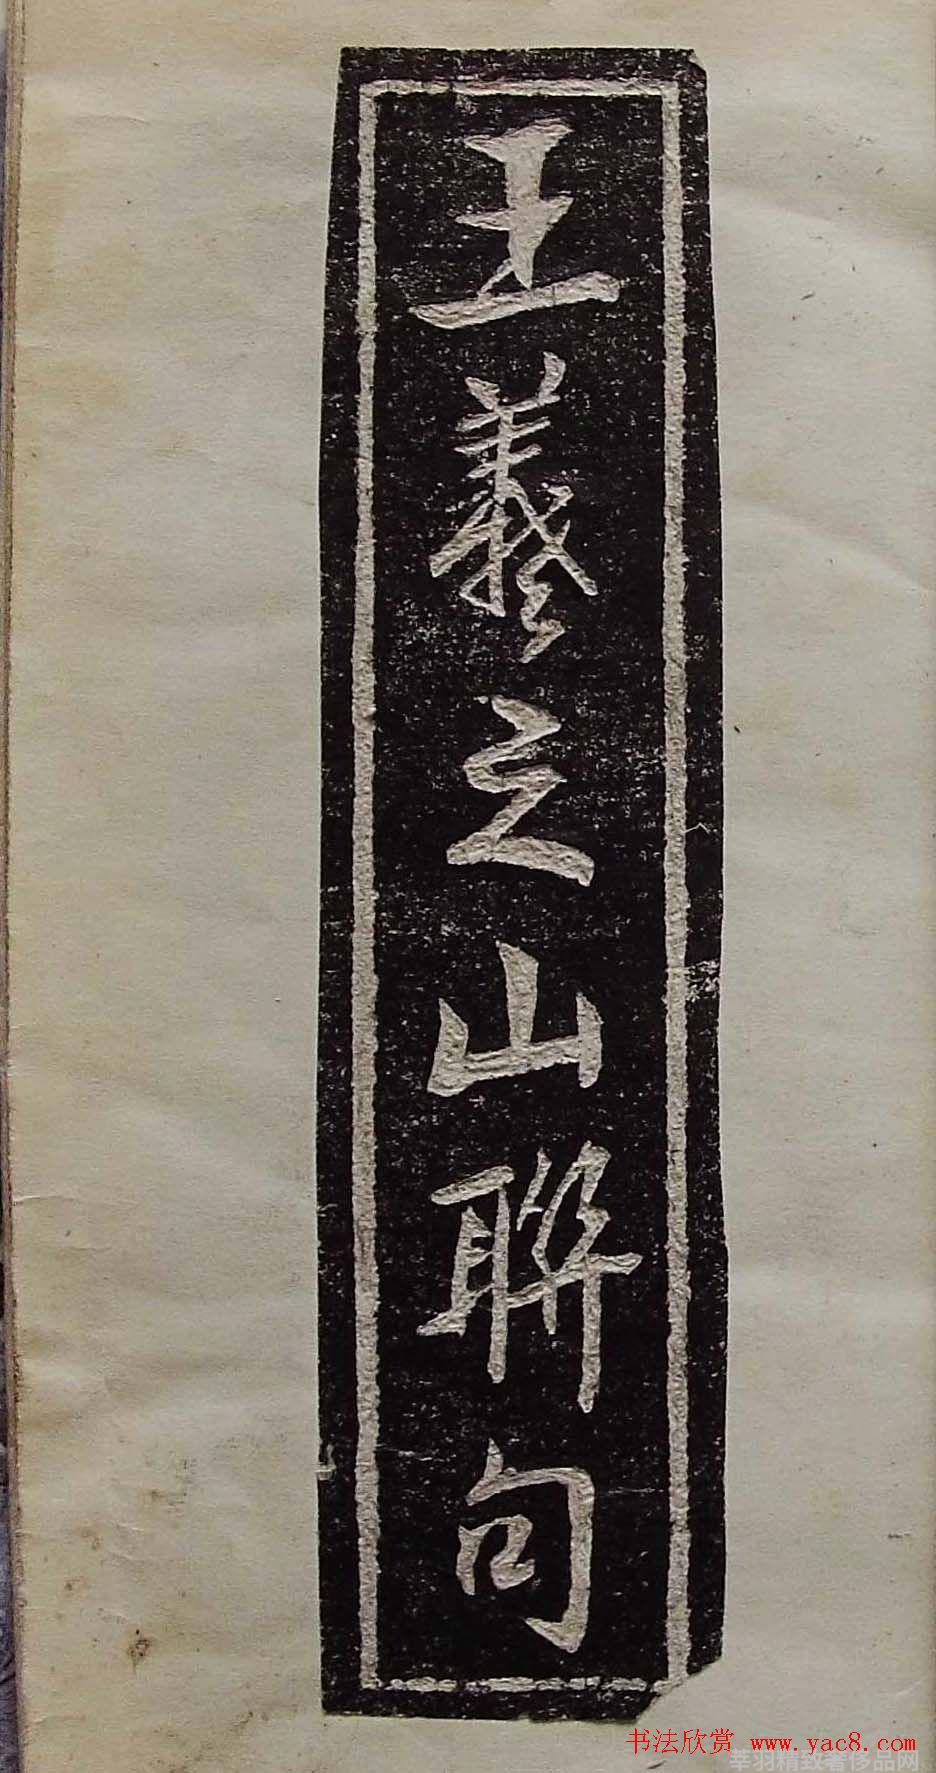 王羲之山聯句
书法欣赏 www.yac8.com
莘羽精致奢侈品网